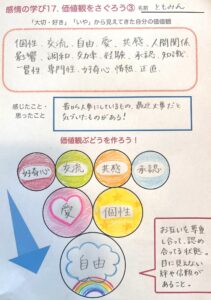 感情の学び17. 価値観をさぐろう③ 名前 ともみん
「大切・好き」「いや」から見えてきた自分の価値観
個性、交流、自由、愛、共感、人間関係
影響、調和、努力、経験、承認、知識
一貫性、専門性、好奇心、情熱、正直
感じたこと・
思ったこと
昔から大事にしているもの、最近大事だと
気づいたものがある!
価値観ぶどうを作ろう!
好奇心
交流
共感
承認
愛
個性
自由
お互いを尊重
し合って、認め
合ってる状態。
目に見えない
絆や信頼が
あること。